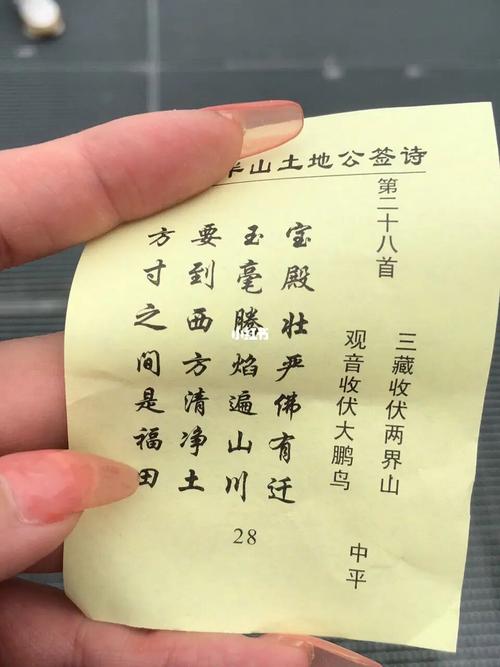 山土地公签诗
第二十八首
三藏收伏两界山
观音收伏大鹏鸟
中平
宝殿壮严佛有迁
玉毫腾焰遍山川
要到西方清净土
方寸之间是福田
28
小红书